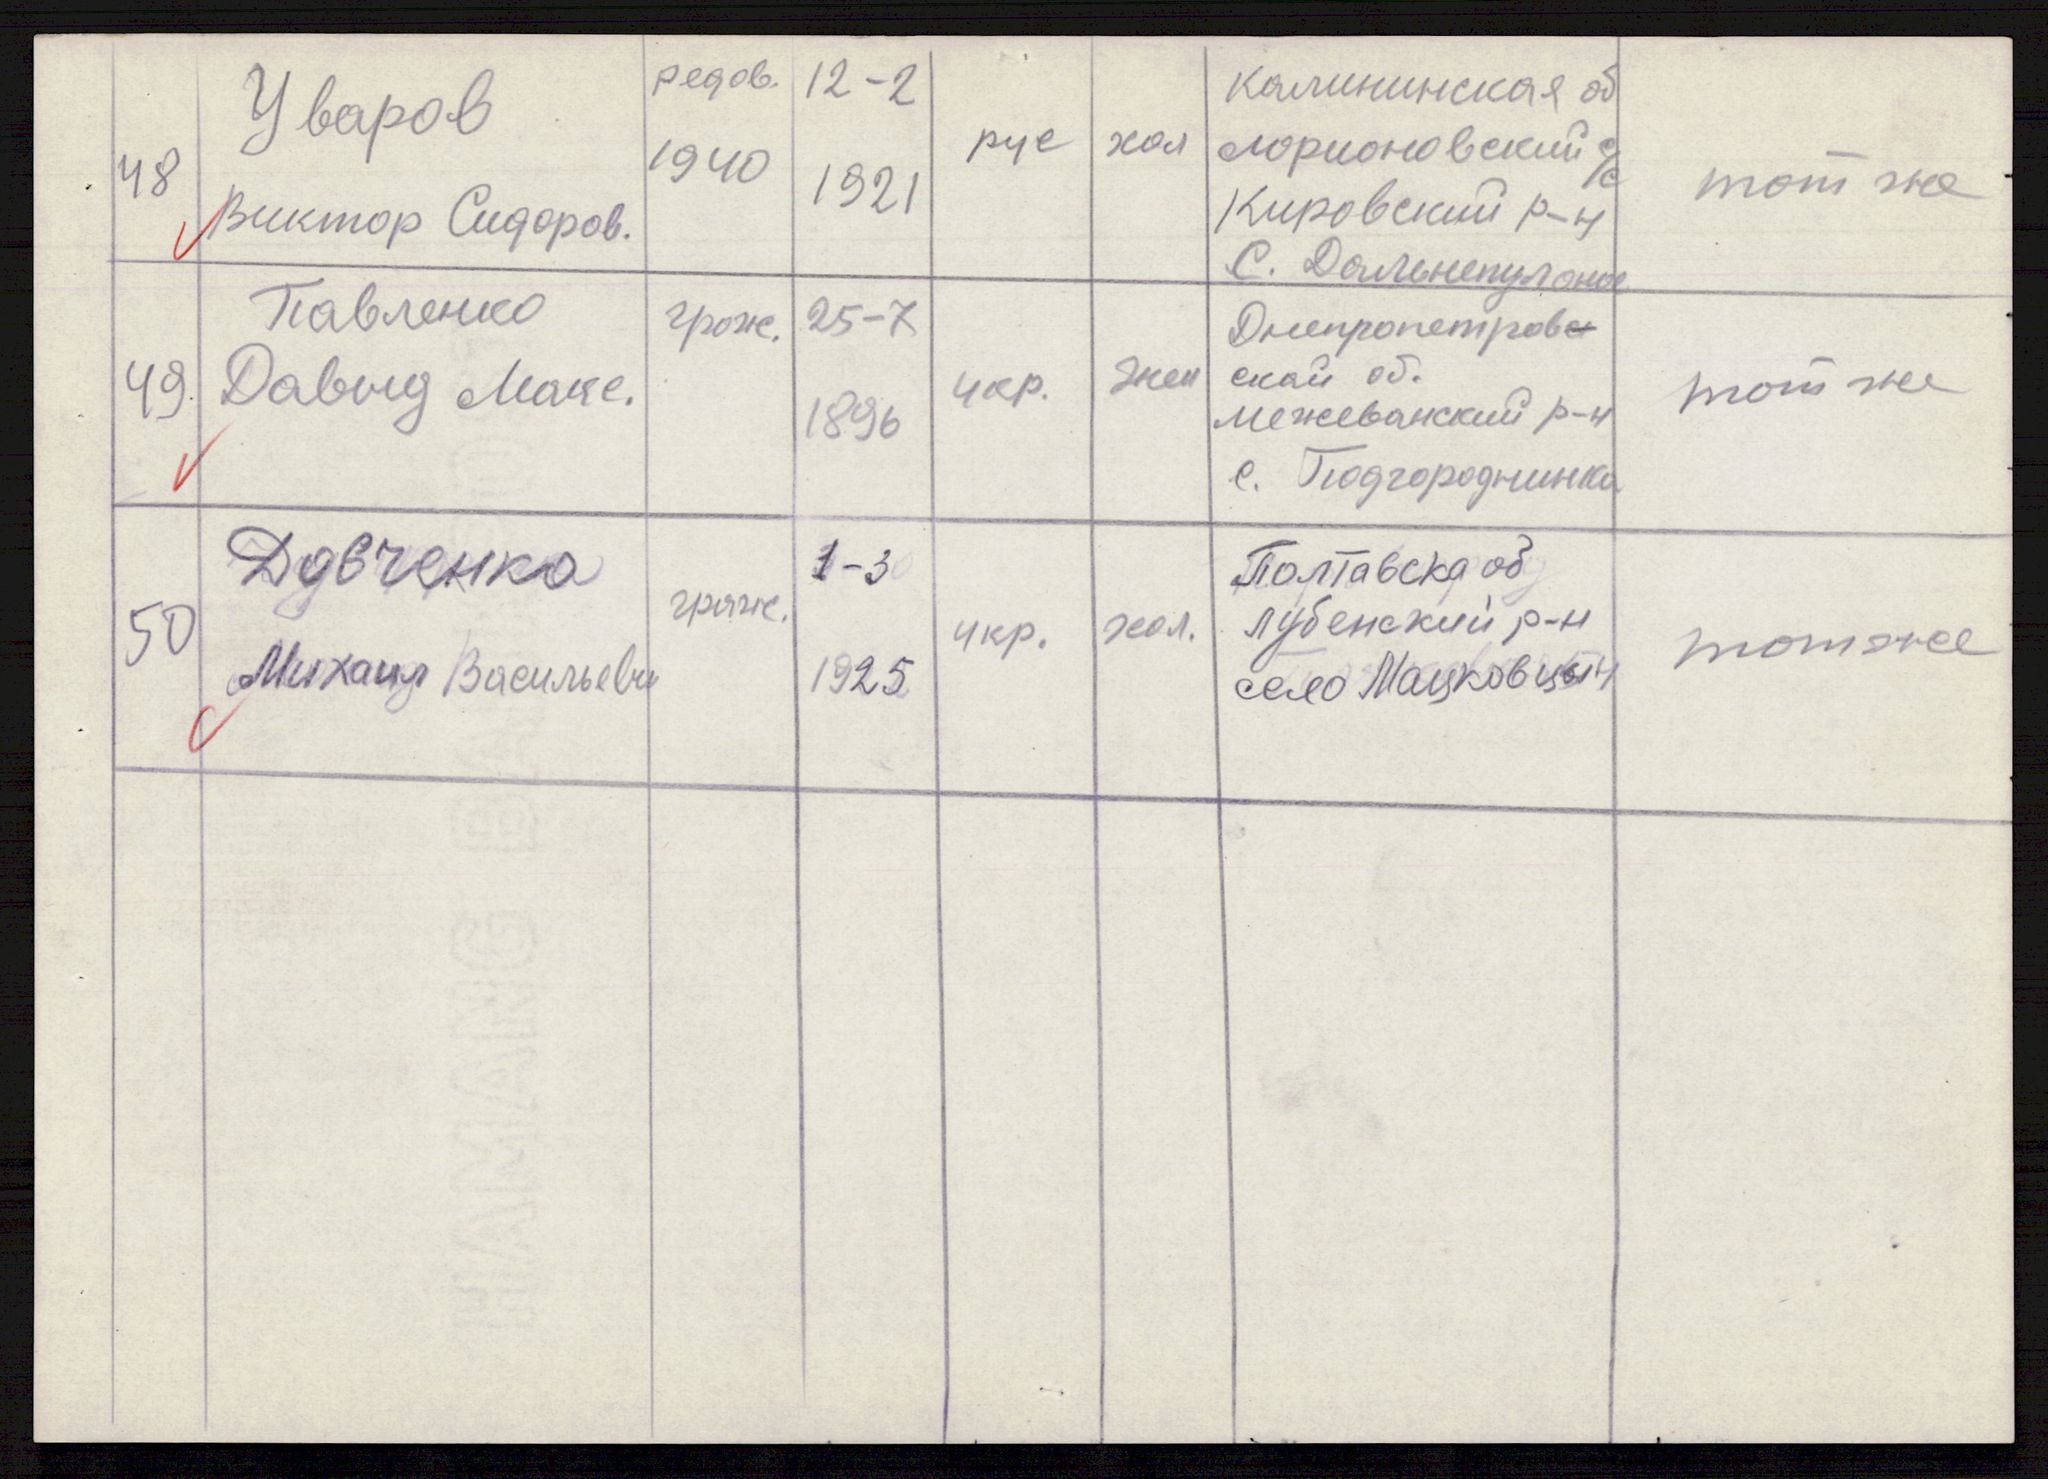 48
Уваров
Виктор Сидоров.
редов.
1940
12-2
1921
рус
хол
Калининская об
лорионовский с/с
Кировский р-н
С.
тот же
49
Павленко
Давыд Макс.
грож.
25-7
1896
укр.
жен
Днепропетров
скай об.
Межеванский р-н
с. Подгороднинка
тот же
50
Довченко
Михаил Васильеви
грож.
1-3
1925
укр.
хол.
Полтавска об
лубенский р-н
село Мацковцы
тот же